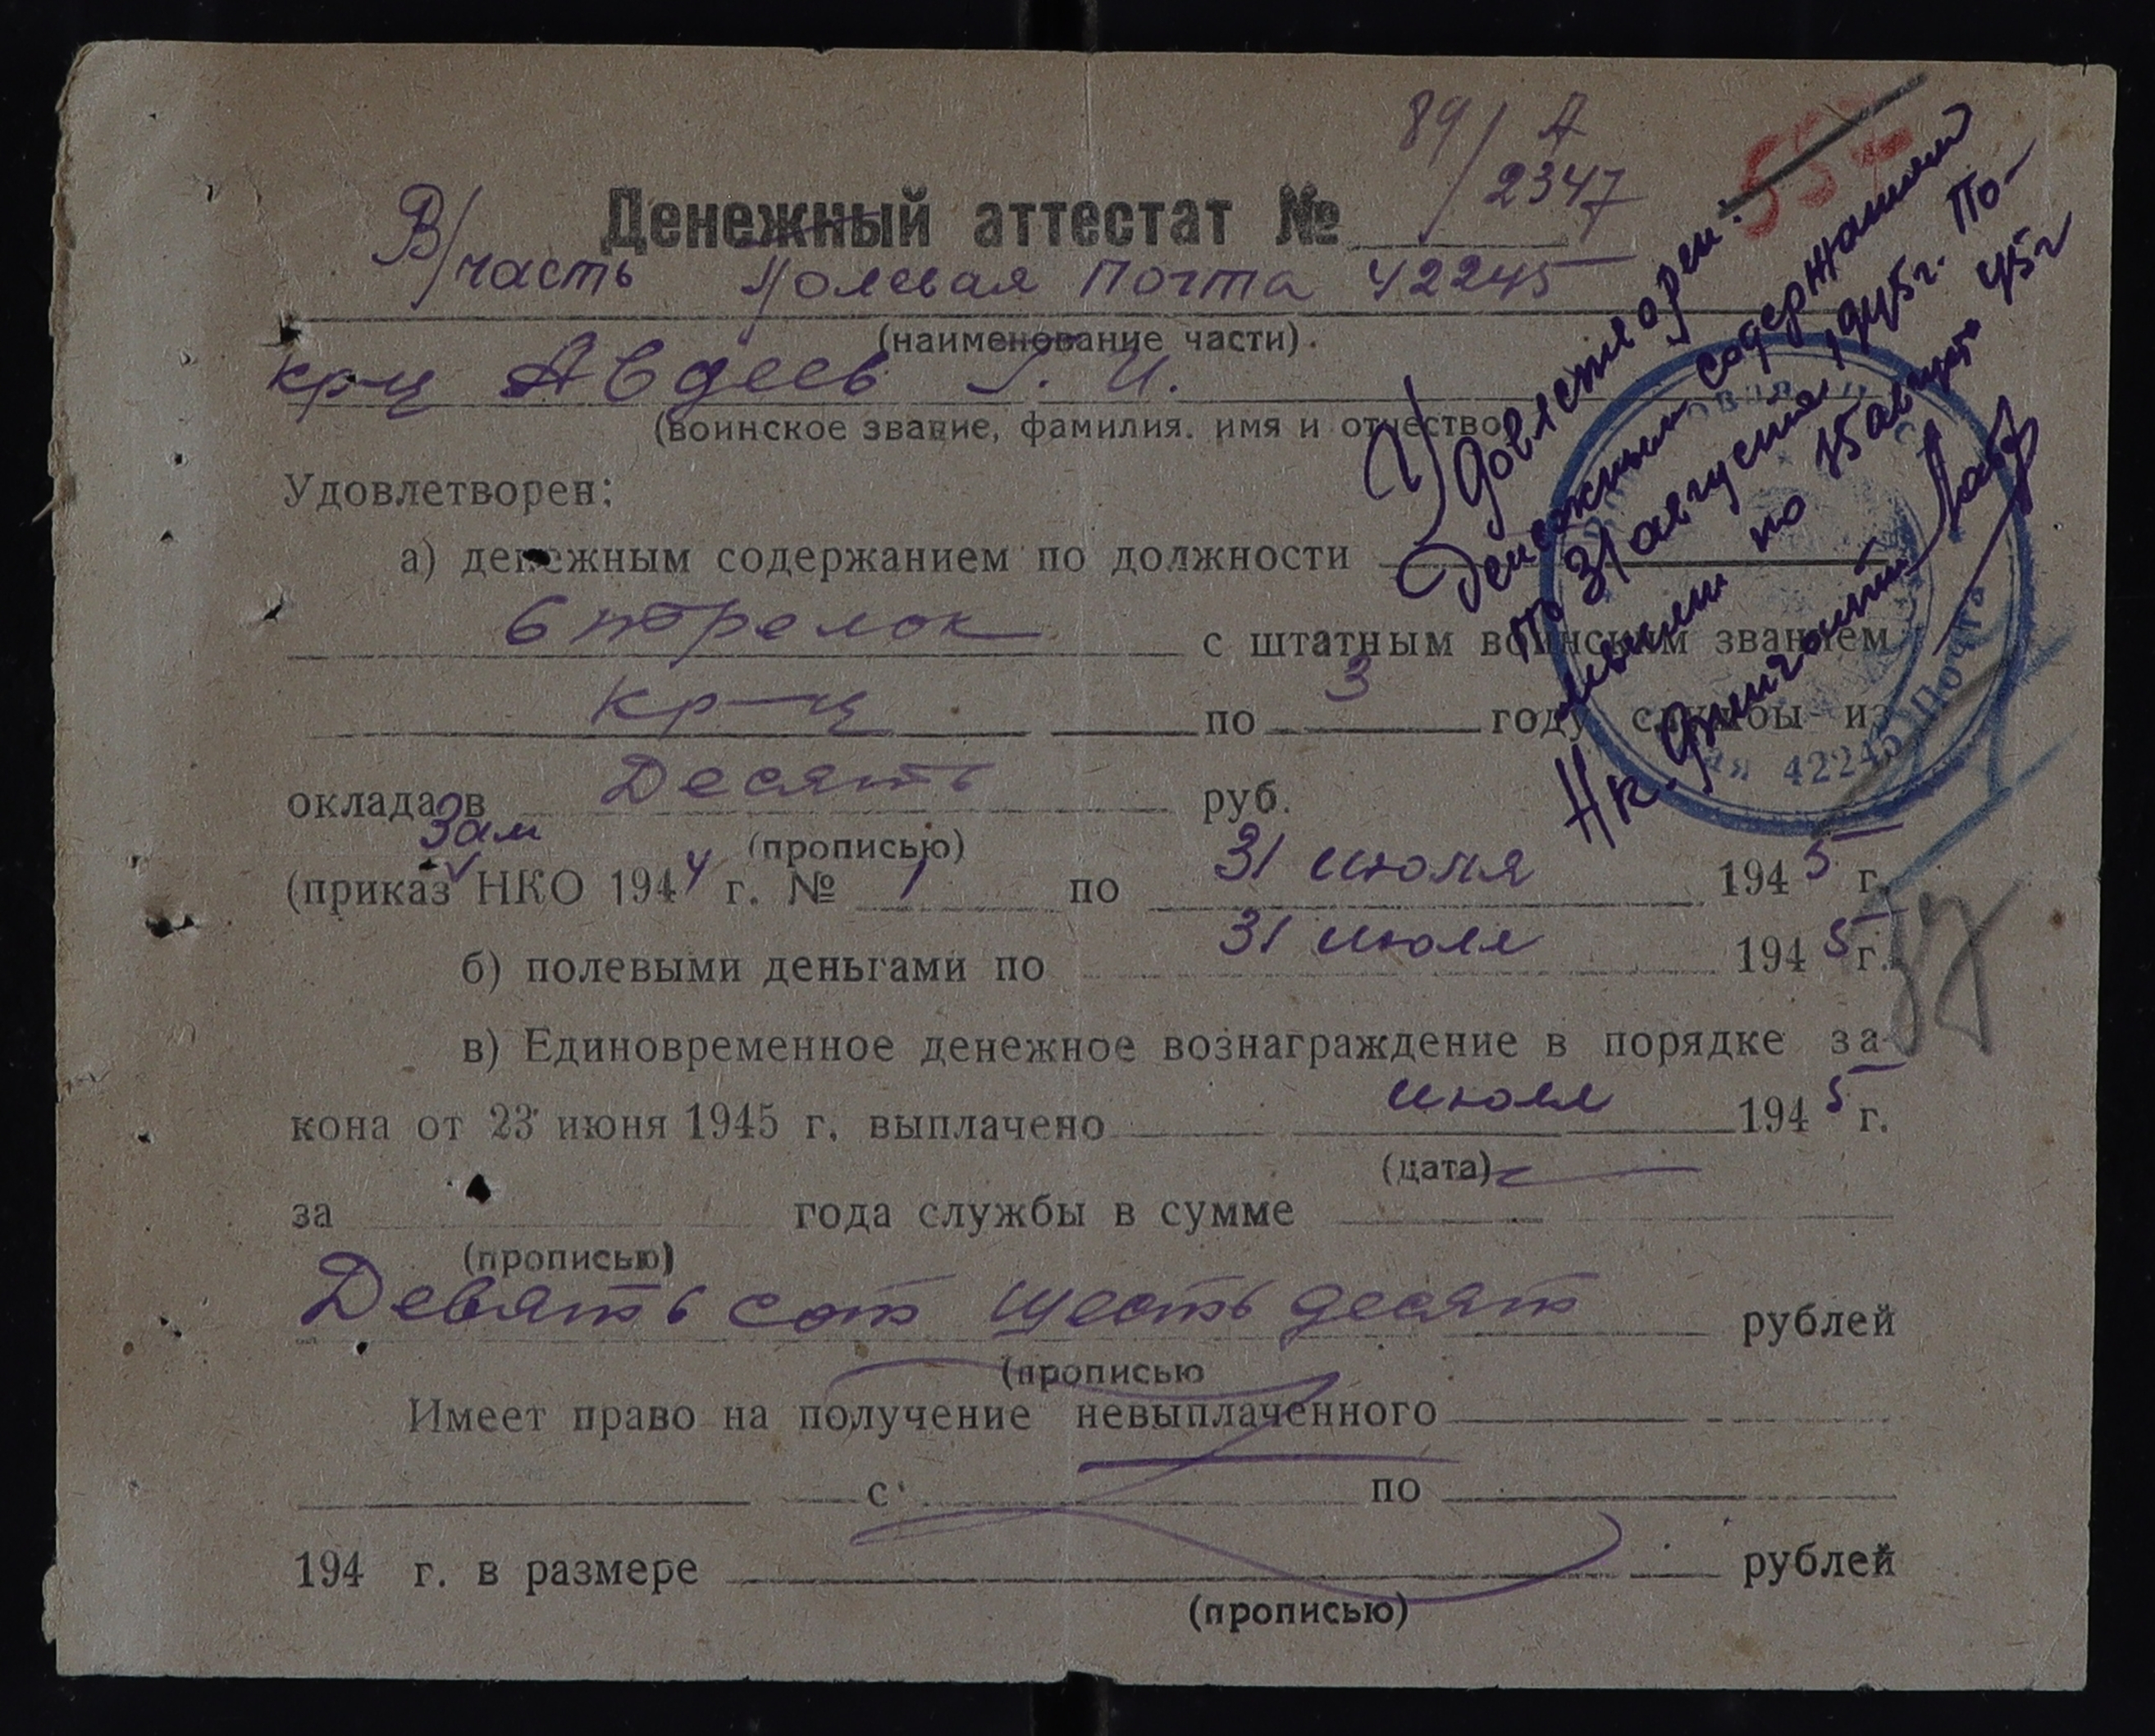 89/ А
2347
557
Денежный аттестат №
В/часть Полевая Почта 42245
(наименование части).
кр-ц Авдеев Г. И.
(воинское звание, фамилия. имя и отчество)
Удовлетворен:
а) денежным содержанием по должности
Стрелок с штатным воинским званием
кр-ц по 3 году службы из
оклада в Десять руб.
(прописью)
зам
(приказ НКО 1944 г. № 1 по 31 июля 1945 г.
б) полевыми деньгами по 31 июля 1945 г.
в) Единовременное денежное вознаграждение в порядке за-
кона от 23 июня 1945 г. выплачено июля 1945 г.
(дата)
за года службы в сумме
(прописью)
Девятьсот шестьдесят рублей
(прописью
Имеет право на получение невыплаченного
с по
194 г. в размере рублей
(прописью)
Удовлетворен
денежным содержанием
по 31 августа 1945г. По-
левыми по 15 августа 45г
Нк.
42245
Почта